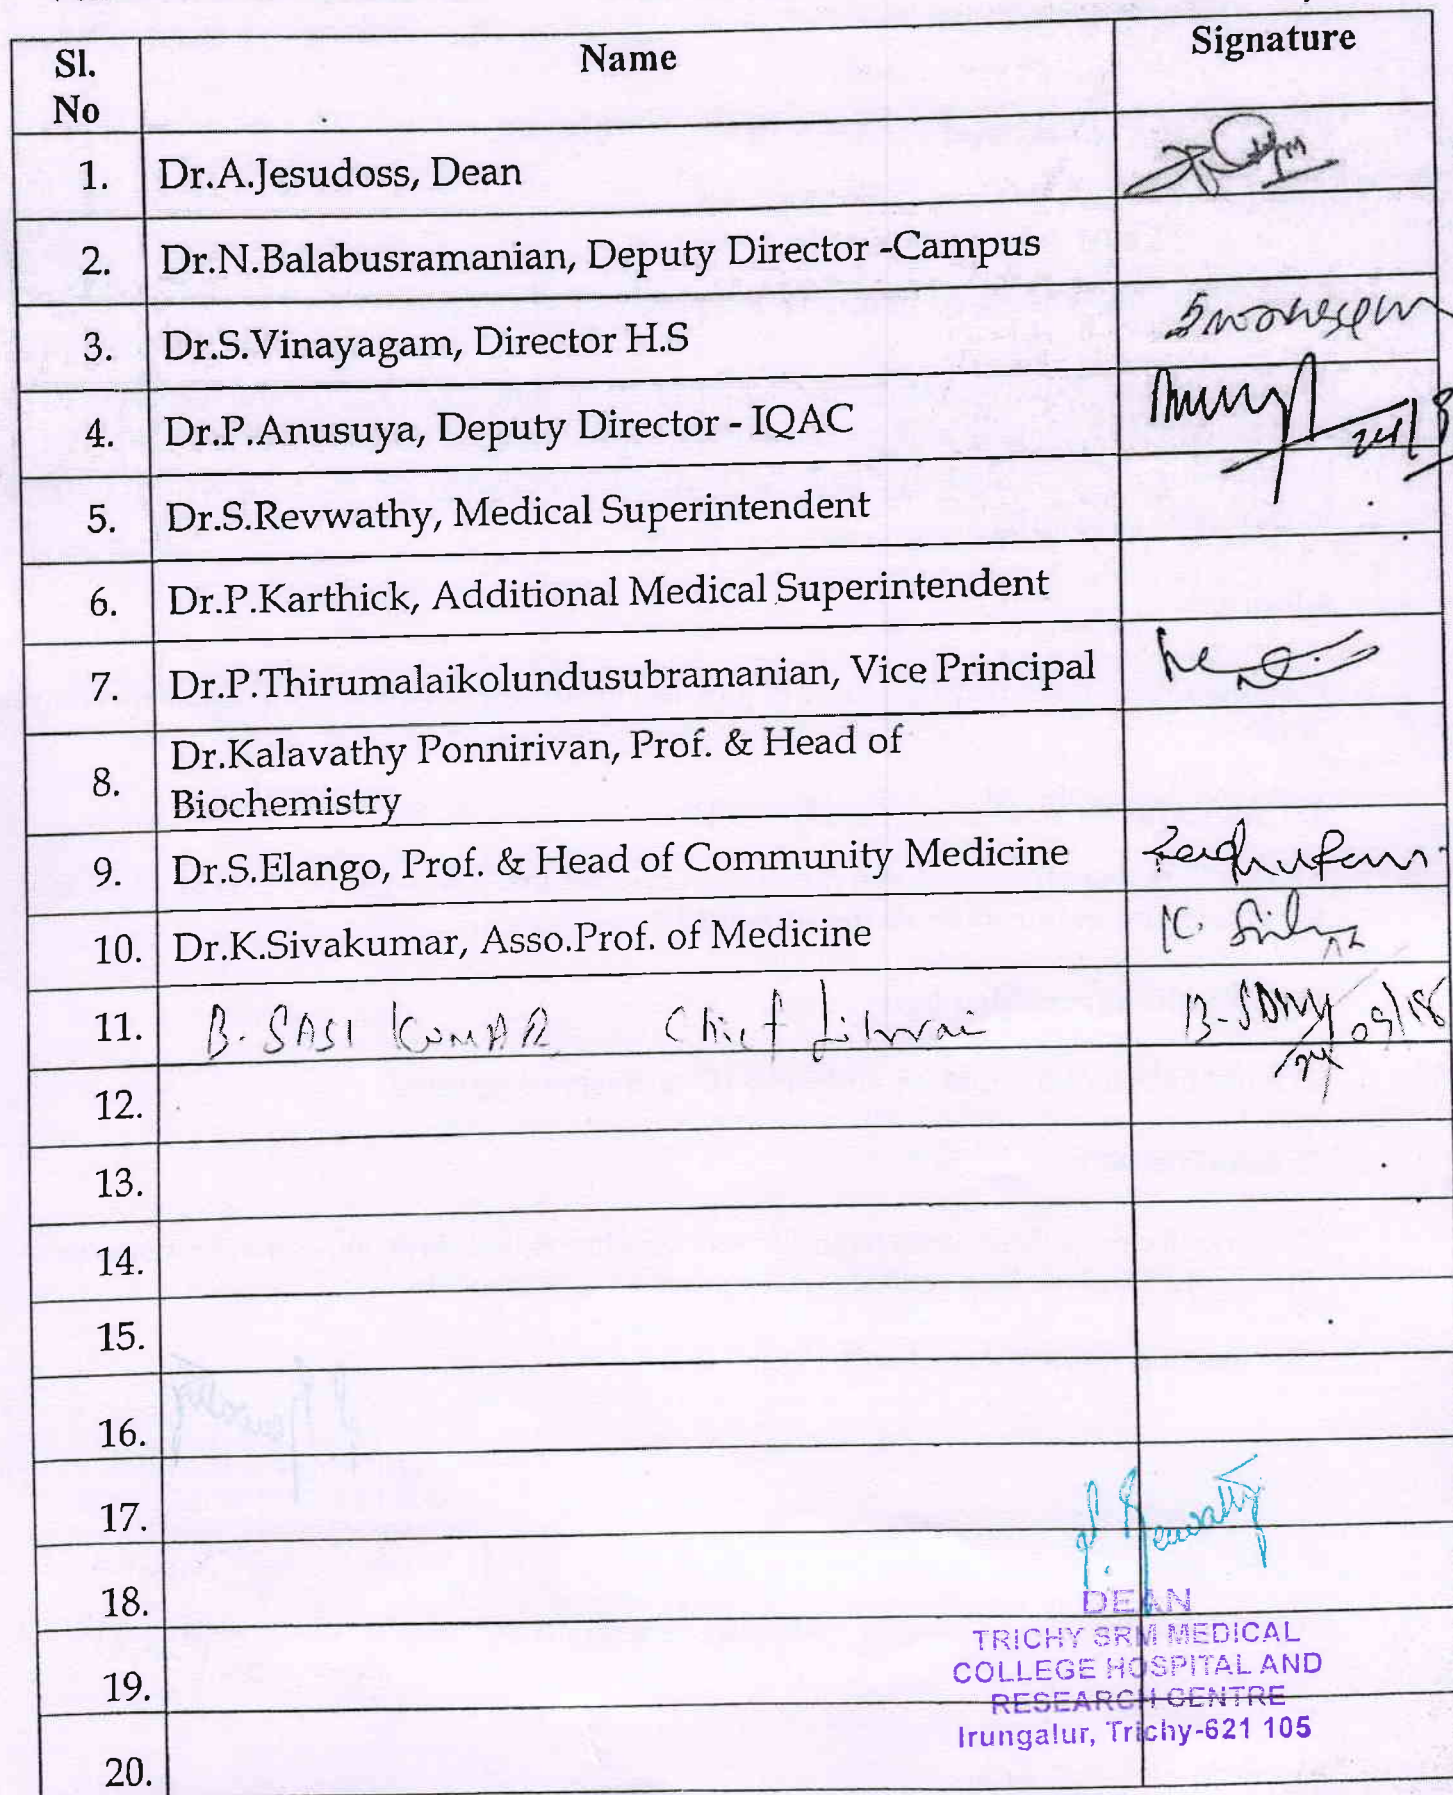 Sl. No Name Signature
1. Dr.A.Jesudoss, Dean
2. Dr.N.Balabusramanian, Deputy Director -Campus
3. Dr.S.Vinayagam, Director H.S
4. Dr.P.Anusuya, Deputy Director - IQAC 24/
5. Dr.S.Revwathy, Medical Superintendent
6. Dr.P.Karthick, Additional Medical Superintendent
7. Dr.P.Thirumalaikolundusubramanian, Vice Principal
8. Dr.Kalavathy Ponnirivan, Prof. & Head of
Biochemistry
9. Dr.S.Elango, Prof. & Head of Community Medicine
10. Dr.K.Sivakumar, Asso.Prof. of Medicine
11. B. SASI KUMAR Chief
12.
13.
14.
15.
16.
17.
18.
DEAN
TRICHY SRM MEDICAL
COLLEGE HOSPITAL AND
19.
RESEARCH CENTRE
Irungalur, Trichy-621 105
20.